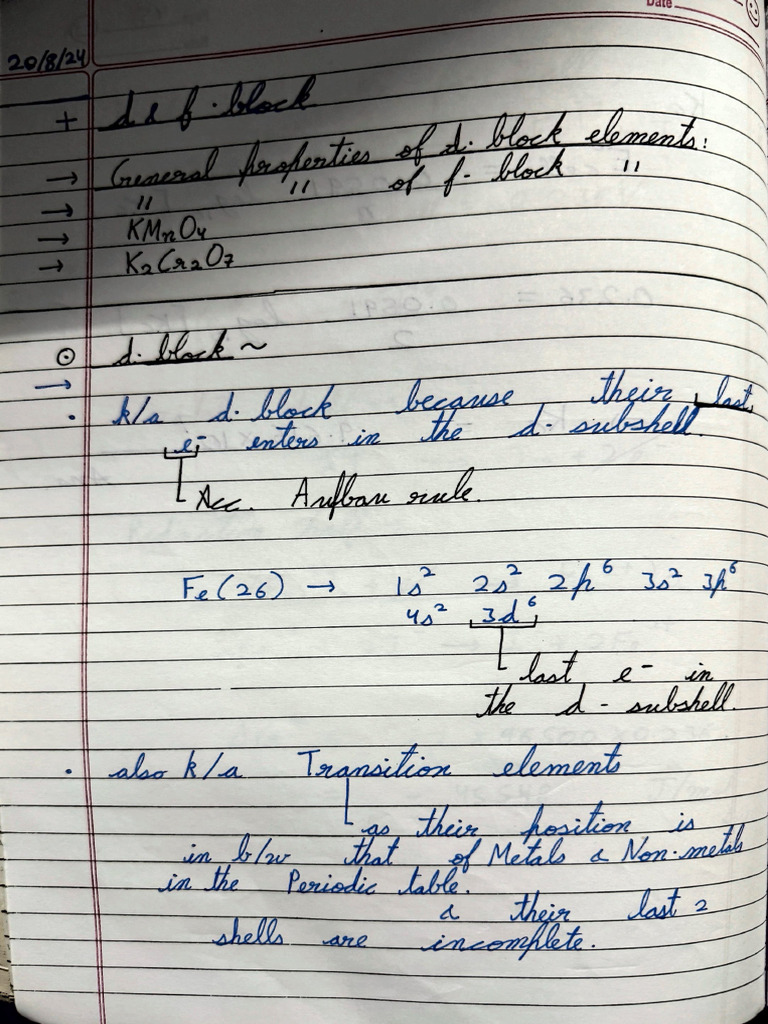 Date
20/8/24
+ d & f-block
→ General properties of d-block elements:
→ " " of f-block "
→ KMnO4
→ K2Cr2O7
⊙ d-block ~
→
• k/a d-block because their last
e- enters in the d-subshell.
Acc. Aufbau rule.
Fe(26) → 1s² 2s² 2p⁶ 3s² 3p⁶
4s² 3d⁶
last e- in
the d-subshell.
• also k/a Transition elements
as their position is
in b/w that of Metals & Non-metals
in the Periodic table.
& their last 2
shells are incomplete.